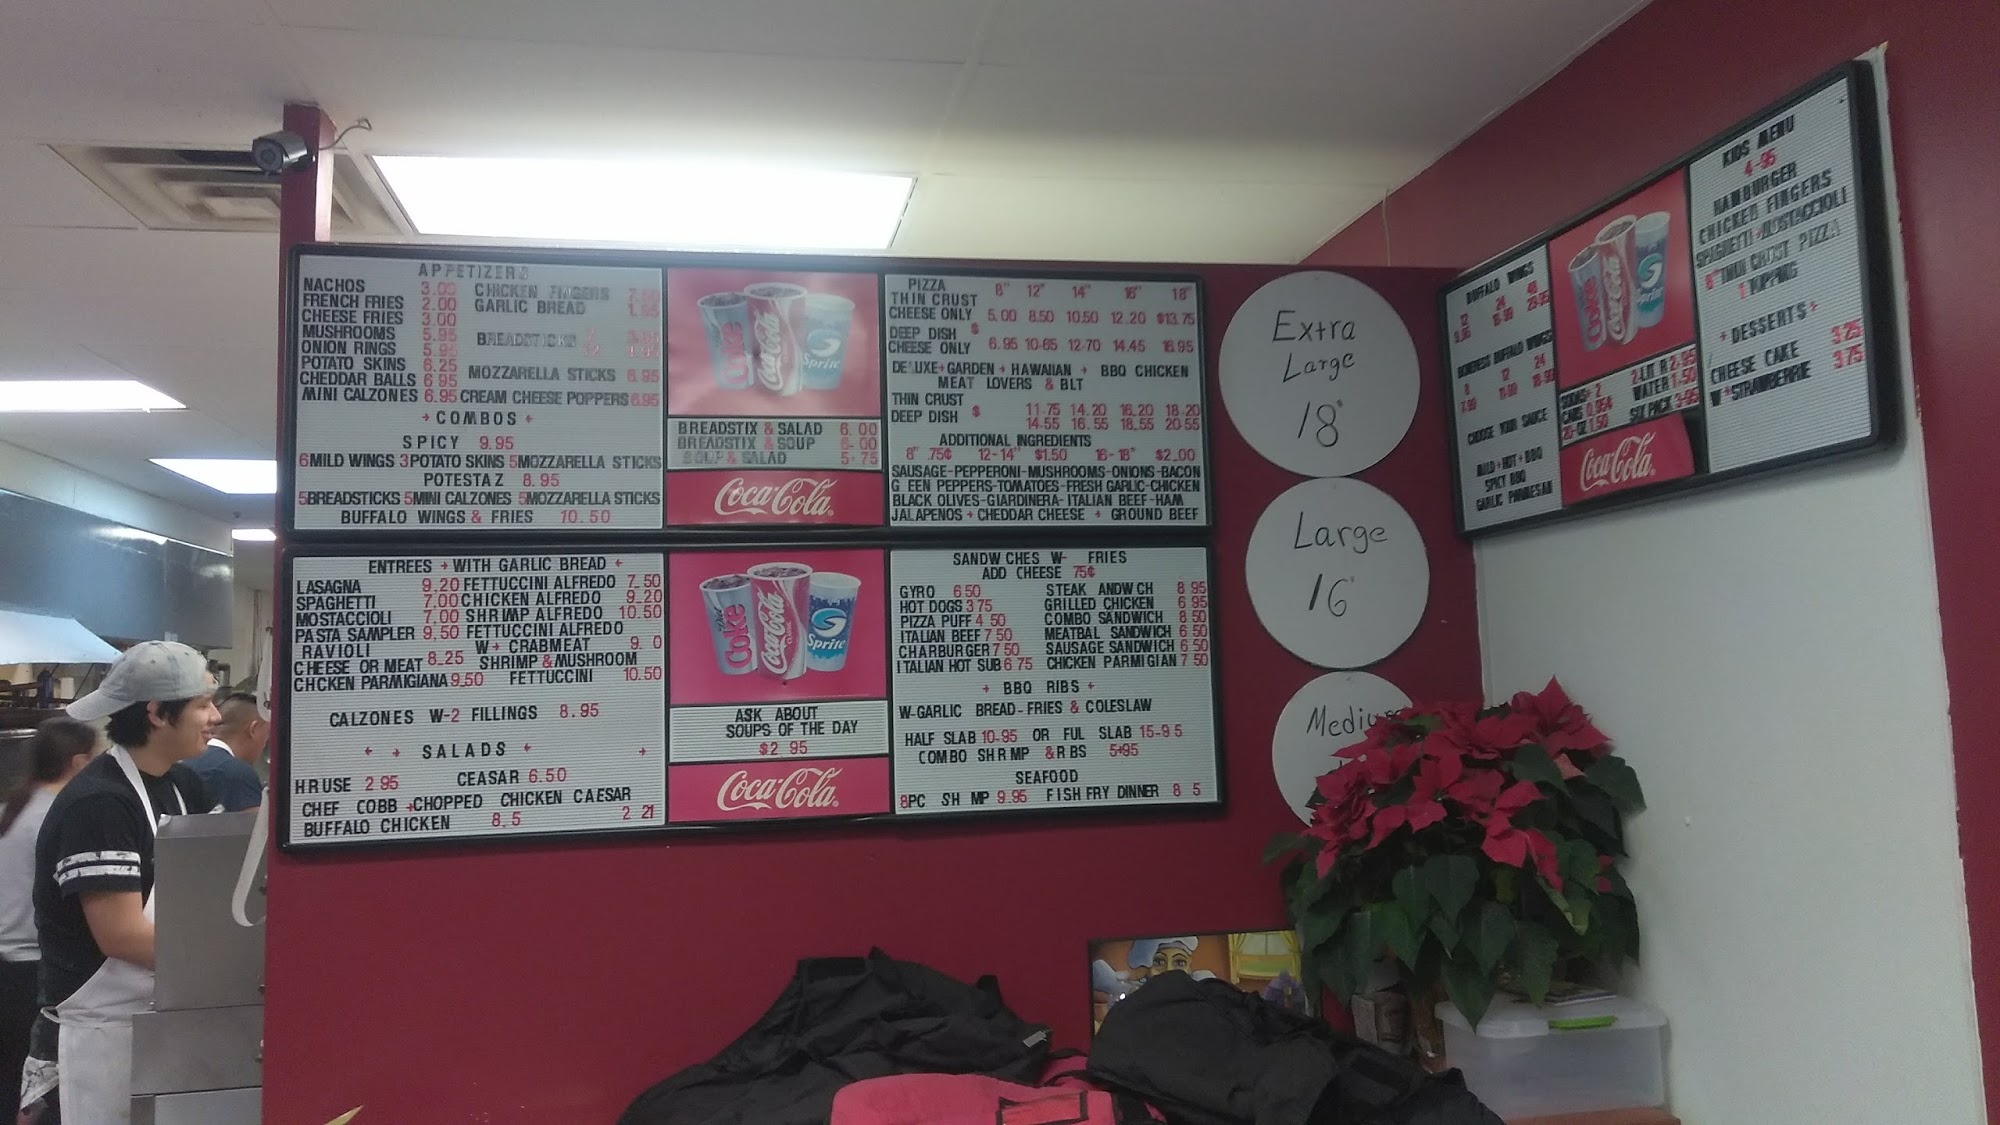 APPETIZERS
NACHOS 3.00 CHICKEN FINGERS
FRENCH FRIES 2.00 GARLIC BREAD
CHEESE FRIES 3.00
MUSHROOMS 5.95 BREADSTICKS
ONION RINGS 5.95
POTATO SKINS 6.25 MOZZARELLA STICKS 6.95
CHEDDAR BALLS 6 95
MINI CALZONES 6.95 CREAM CHEESE POPPERS 6.95
COMBOS
SPICY 9.95
6 MILD WINGS 3 POTATO SKINS 5 MOZZARELLA STICKS
POTESTA Z 8.95
5 BREADSTICKS 5 MINI CALZONES 5 MOZZARELLA STICKS
BUFFALO WINGS & FRIES 10.50
Coke
Coca-Cola
Sprite
BREADSTIX & SALAD 6.00
BREADSTIX & SOUP 6-00
SOUP & SALAD 5-75
Coca-Cola
PIZZA 8" 12" 14" 16" 18"
THIN CRUST
CHEESE ONLY 5.00 8.50 10.50 12.20 $13.75
DEEP DISH $
CHEESE ONLY 6.95 10-65 12-70 14.45 16.95
DE UXE + GARDEN + HAWAIIAN + BBQ CHICKEN
MEAT LOVERS & BLT
THIN CRUST 11-75 14.20 16.20 18.20
DEEP DISH $ 14-55 16.55 18.55 20-55
ADDITIONAL INGREDIENTS
8" .75¢ 12-14" $1.50 16-18" $2.00
SAUSAGE-PEPPERONI-MUSHROOMS-ONIONS-BACON
G EEN PEPPERS-TOMATOES-FRESH GARLIC-CHICKEN
BLACK OLIVES-GIARDINERA-ITALIAN BEEF-HAM
JALAPENOS + CHEDDAR CHEESE + GROUND BEEF
ENTREES + WITH GARLIC BREAD +
LASAGNA 9.20 FETTUCCINI ALFREDO 7.50
SPAGHETTI 7.00 CHICKEN ALFREDO 9.20
MOSTACCIOLI 7.00 SHRIMP ALFREDO 10.50
PASTA SAMPLER 9.50 FETTUCCINI ALFREDO
RAVIOLI W+ CRABMEAT 9. 0
CHEESE OR MEAT 8.25 SHRIMP & MUSHROOM
CHCKEN PARMIGIANA 9.50 FETTUCCINI 10.50
CALZONES W-2 FILLINGS 8.95
SALADS
H RUSE 2.95 CEASAR 6.50
CHEF COBB + CHOPPED CHICKEN CAESAR
BUFFALO CHICKEN 8. 5 2 21
Coke
Coca-Cola
Sprite
ASK ABOUT
SOUPS OF THE DAY
$2 95
Coca-Cola
SANDW CHES W- FRIES
ADD CHEESE 75¢
GYRO 6 50 STEAK ANDW CH 8 95
HOT DOGS 3 75 GRILLED CHICKEN 6 95
PIZZA PUFF 4 50 COMBO SANDWICH 8 50
ITALIAN BEEF 7 50 MEATBAL SANDWICH 6 50
CHARBURGER 7 50 SAUSAGE SANDWICH 6 50
ITALIAN HOT SUB 6 75 CHICKEN PARMIGIAN 7 50
+ BBQ RIBS +
W-GARLIC BREAD-FRIES & COLESLAW
HALF SLAB 10-95 OR FUL SLAB 15-9 5
COMBO SHR MP & R BS 5+95
SEAFOOD
8PC SH MP 9.95 FISH FRY DINNER 8 5
Extra
Large
18"
Large
16"
Medium
BUFFALO WINGS
12 24 48
BONELESS BUFFALO WINGS
8 12 24
CHOOSE YOUR SAUCE
MILD + HOT + BBQ
SPICY BBQ
GARLIC PARMESAN
Coke
Coca-Cola
Sprite
2-LIT R 2-95
CANS WATER 1-50
20-OZ 1.50 SIX PACK 3-95
Coca-Cola
KIDS MENU
4-95
HAMBURGER
CHICKEN FINGERS
SPAGHETTI + MOSTACCIOLI
8" THIN CRUST PIZZA
1 TOPPING
+ DESSERTS +
CHEESE CAKE 3-25
W + STRAWBERRIE 3-75